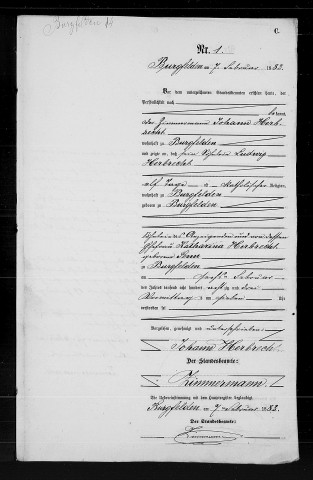 C.
Nr. 1.
Burgfelden am 7. Februar 1883.
Vor dem unterzeichneten Standesbeamten erschien heute, der
Persönlichkeit nach
kannt,
der Zimmermann Johann Herb-
recht
wohnhaft zu Burgfelden
und zeigte an, daß sein Söhnlein Ludwig
Herbrecht
elf Tage alt, katholischer Religion,
wohnhaft zu Burgfelden
geboren zu Burgfelden
Söhnlein des Anzeigenden und von dessen
Ehefrau Katharina Herbrecht
geborene
zu Burgfelden
am Februar
des Jahres tausend acht hundert achtzig und drei
Vormittags um sieben Uhr
verstorben sei
Vorgelesen, genehmigt und unterschrieben:
Johann Herbrecht.
Der Standesbeamte:
Zimmermann.
Die Uebereinstimmung mit dem Hauptregister beglaubigt
Burgfelden am 7. Februar 1883.
Der Standesbeamte:
Zimmermann